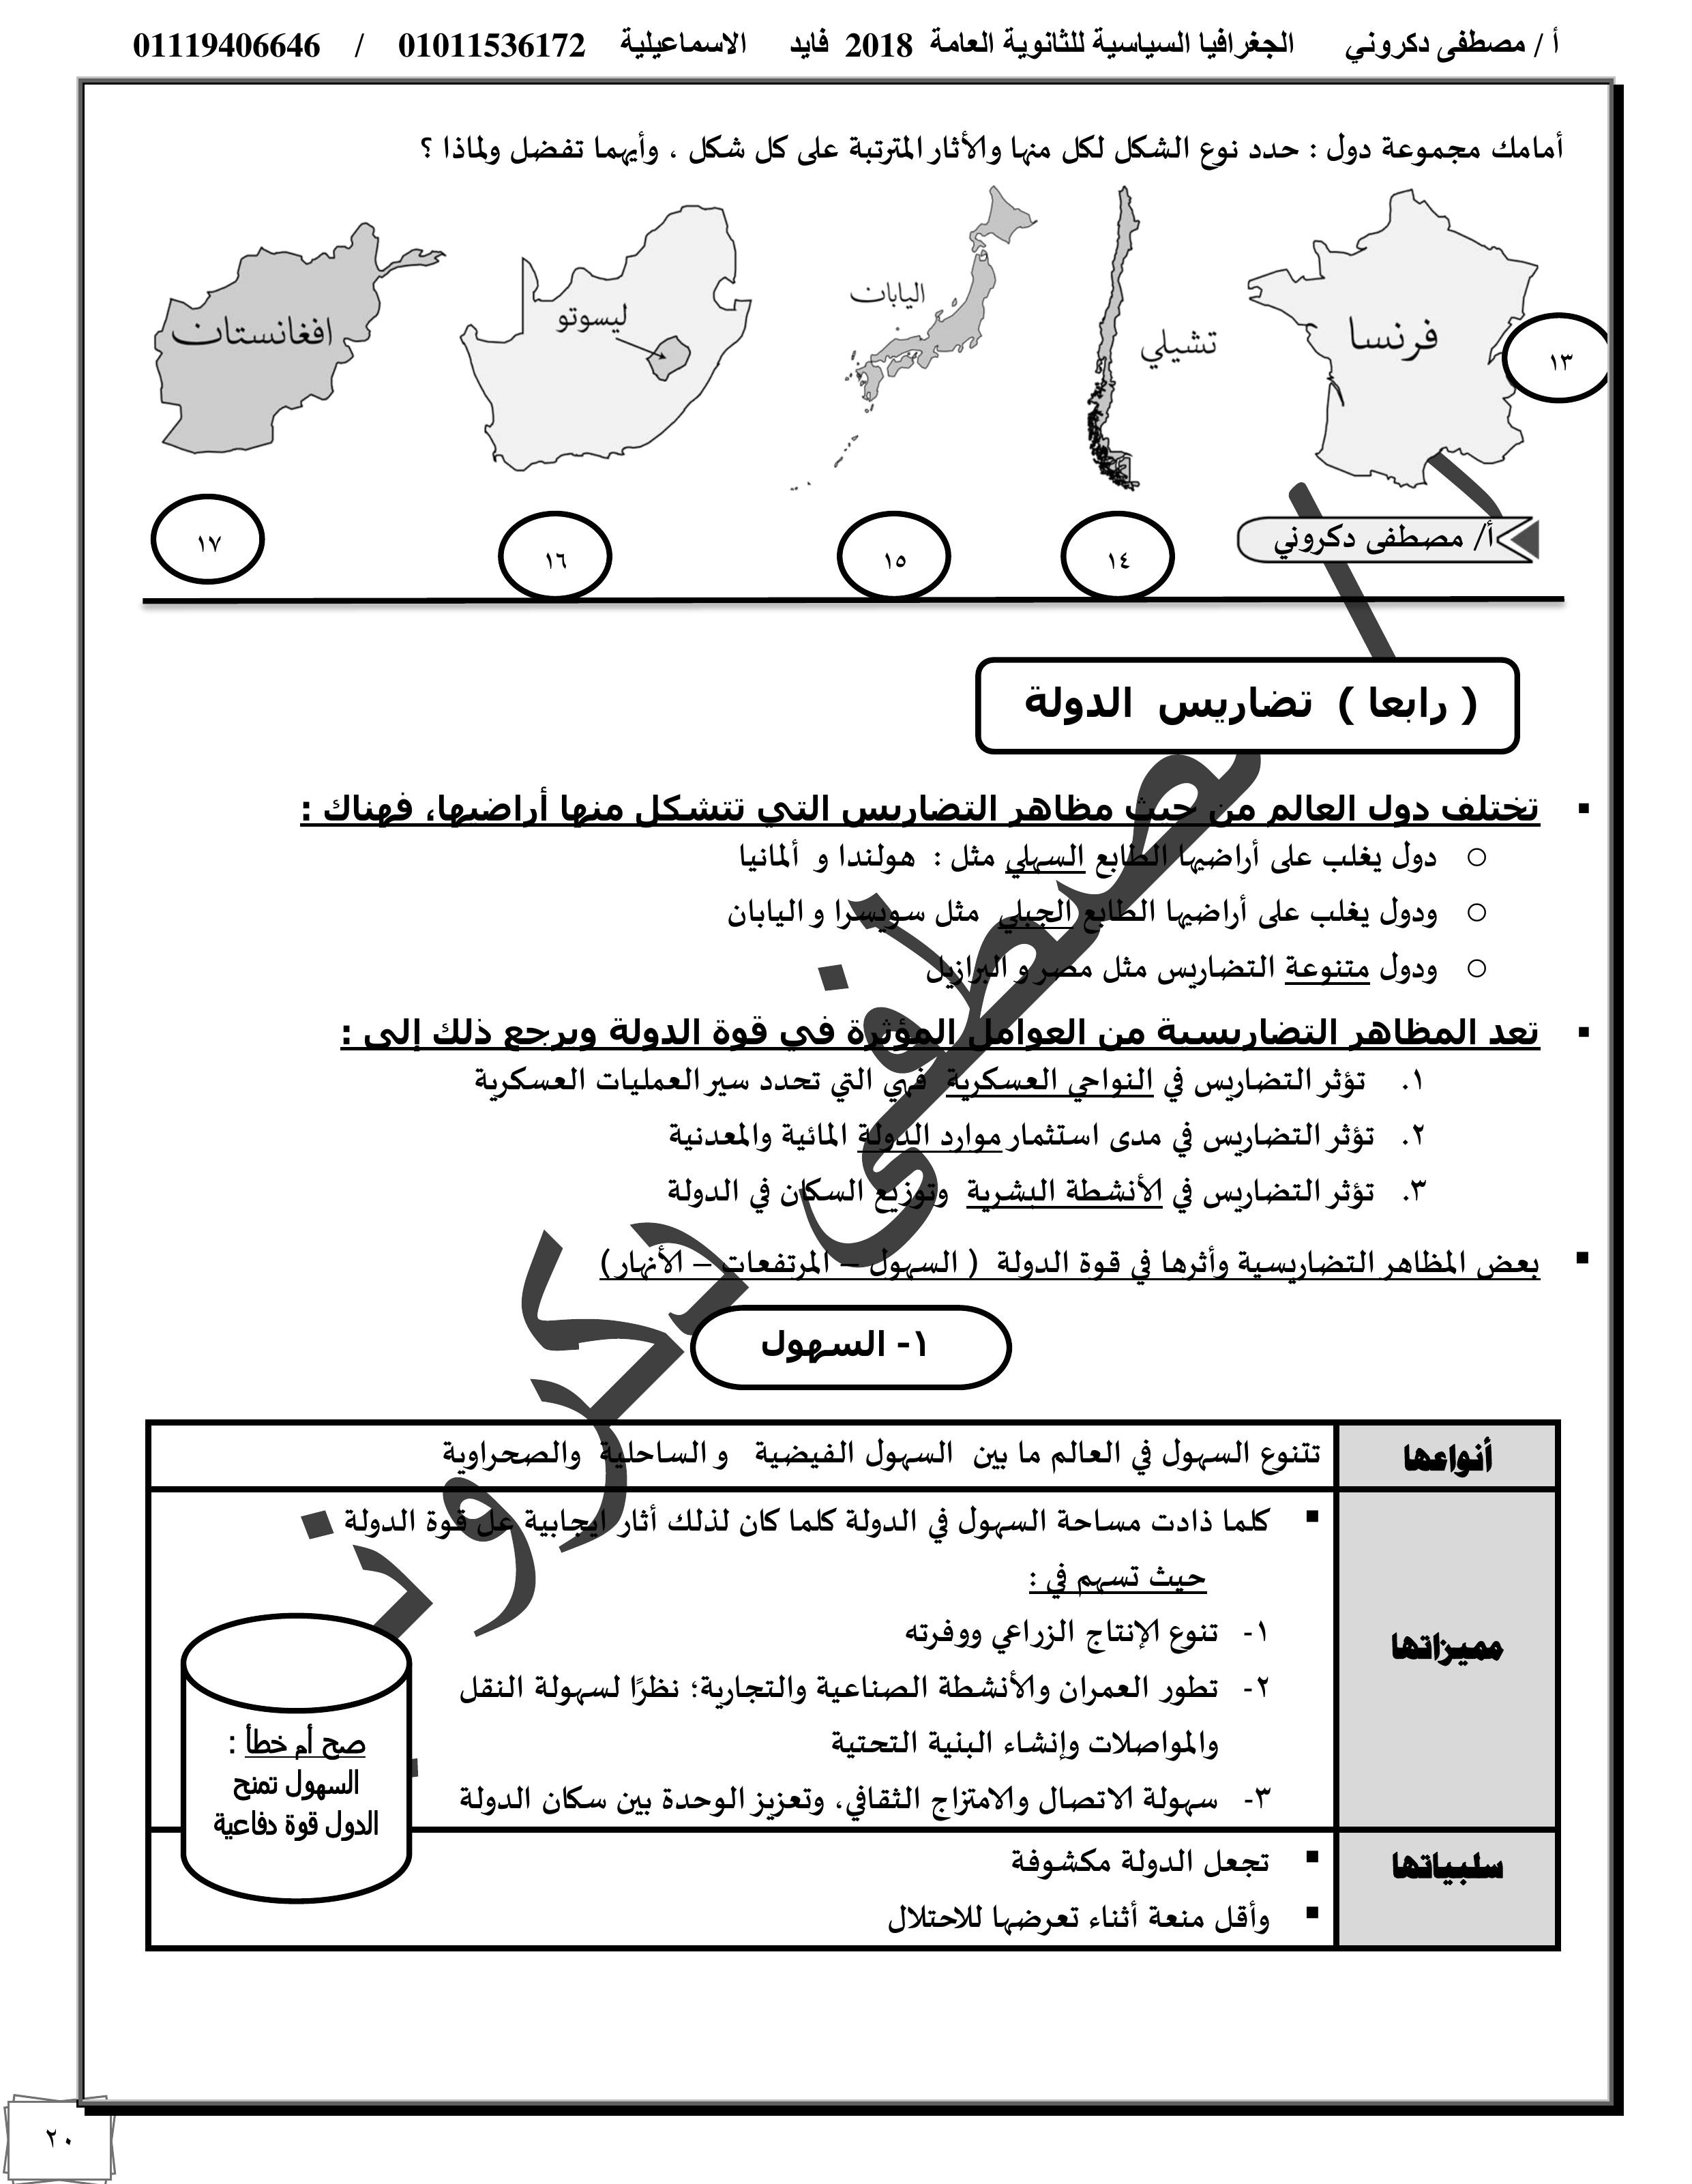 أ / مصطفى دكروني الجغرافيا السياسية للثانوية العامة 2018 فايد الاسماعيلية 01011536172 / 01119406646
أمامك مجموعة دول : حدد نوع الشكل لكل منها والأثار المترتبة على كل شكل ، وأيهما تفضل ولماذا ؟
فرنسا
تشيلي
اليابان
ليسوتو
افغانستان
١٣
١٤
١٥
١٦
١٧
أ/ مصطفى دكروني
( رابعا ) تضاريس الدولة
▪ تختلف دول العالم من حيث مظاهر التضاريس التي تتشكل منها أراضيها، فهناك :
○ دول يغلب على أراضيها الطابع السهلي مثل : هولندا و ألمانيا
○ ودول يغلب على أراضيها الطابع الجبلي مثل سويسرا و اليابان
○ ودول متنوعة التضاريس مثل مصر و البرازيل
▪ تعد المظاهر التضاريسية من العوامل المؤثرة في قوة الدولة ويرجع ذلك إلى :
١. تؤثر التضاريس في النواحي العسكرية فهي التي تحدد سير العمليات العسكرية
٢. تؤثر التضاريس في مدى استثمار موارد الدولة المائية والمعدنية
٣. تؤثر التضاريس في الأنشطة البشرية وتوزيع السكان في الدولة
▪ بعض المظاهر التضاريسية وأثرها في قوة الدولة ( السهول – المرتفعات – الأنهار)
١- السهول
أنواعها
تتنوع السهول في العالم ما بين السهول الفيضية و الساحلية والصحراوية
مميزاتها
▪ كلما ذادت مساحة السهول في الدولة كلما كان لذلك أثار ايجابية عل قوة الدولة
حيث تسهم في :
١- تنوع الإنتاج الزراعي ووفرته
٢- تطور العمران والأنشطة الصناعية والتجارية؛ نظرًا لسهولة النقل
والمواصلات وإنشاء البنية التحتية
٣- سهولة الاتصال والامتزاج الثقافي، وتعزيز الوحدة بين سكان الدولة
صح أم خطأ :
السهول تمنح
الدول قوة دفاعية
سلبياتها
▪ تجعل الدولة مكشوفة
▪ وأقل منعة أثناء تعرضها للاحتلال
أ / مصطفى دكروني
٢٠